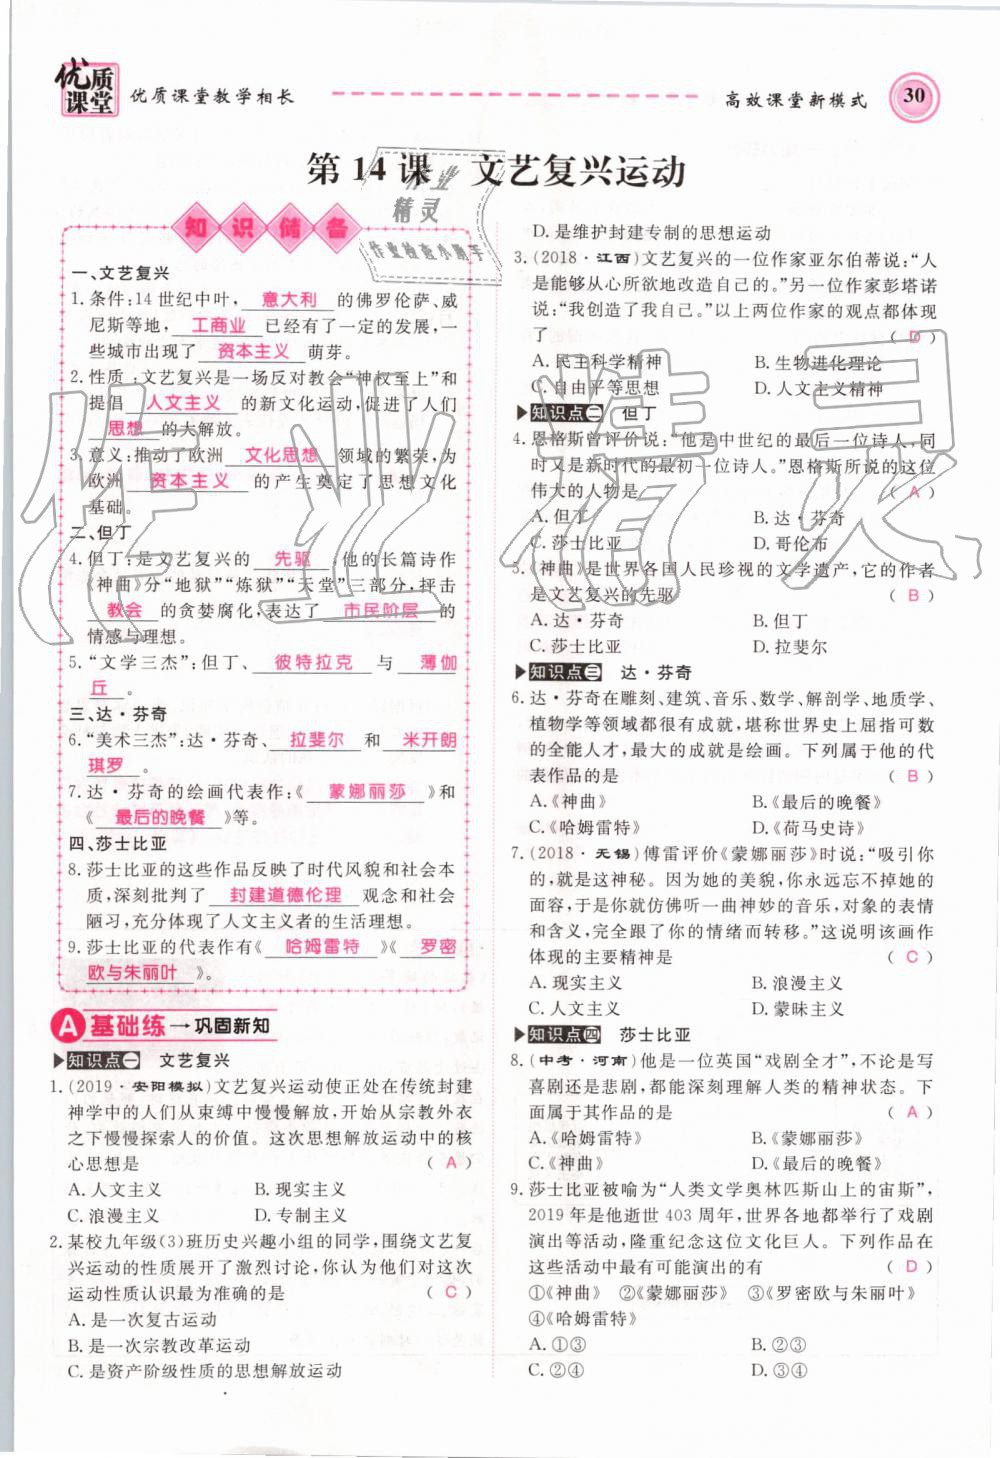 优质课堂
优质课堂教学相长
高效课堂新模式
30
第14课 文艺复兴运动
知识储备
一、文艺复兴
1. 条件:14世纪中叶,意大利的佛罗伦萨、威
尼斯等地,工商业已经有了一定的发展,一
些城市出现了资本主义萌芽。
2. 性质:文艺复兴是一场反对教会“神权至上”和
提倡人文主义的新文化运动,促进了人们
思想的大解放。
3. 意义:推动了欧洲文化思想领域的繁荣,为
欧洲资本主义的产生奠定了思想文化
基础。
二、但丁
4. 但丁:是文艺复兴的先驱,他的长篇诗作
《神曲》分“地狱”“炼狱”“天堂”三部分,抨击
教会的贪婪腐化,表达了市民阶层的
情感与理想。
5. “文学三杰”:但丁、彼特拉克与薄伽
丘。
三、达·芬奇
6. “美术三杰”:达·芬奇、拉斐尔和米开朗
琪罗。
7. 达·芬奇的绘画代表作:《蒙娜丽莎》和
《最后的晚餐》等。
四、莎士比亚
8. 莎士比亚的这些作品反映了时代风貌和社会本
质,深刻批判了封建道德伦理观念和社会
陋习,充分体现了人文主义者的生活理想。
9. 莎士比亚的代表作有《哈姆雷特》《罗密
欧与朱丽叶》。
A 基础练→巩固新知
知识点一 文艺复兴
1. (2019·安阳模拟)文艺复兴运动使正处在传统封建
神学中的人们从束缚中慢慢解放,开始从宗教外衣
之下慢慢探索人的价值。这次思想解放运动中的核
心思想是 (A)
A. 人文主义 B. 现实主义
C. 浪漫主义 D. 专制主义
2. 某校九年级(3)班历史兴趣小组的同学,围绕文艺复
兴运动的性质展开了激烈讨论,你认为他们对这次
运动性质认识最为准确的是 (C)
A. 是一次复古运动
B. 是一次宗教改革运动
C. 是资产阶级性质的思想解放运动
D. 是维护封建专制的思想运动
3. (2018·江西)文艺复兴的一位作家亚尔伯蒂说:“人
是能够从心所欲地改造自己的。”另一位作家彭塔诺
说:“我创造了我自己。”以上两位作家的观点都体现
了 (D)
A. 民主科学精神 B. 生物进化理论
C. 自由平等思想 D. 人文主义精神
知识点二 但丁
4. 恩格斯曾评价说:“他是中世纪的最后一位诗人,同
时又是新时代的最初一位诗人。”恩格斯所说的这位
伟大的人物是 (A)
A. 但丁 B. 达·芬奇
C. 莎士比亚 D. 哥伦布
5. 《神曲》是世界各国人民珍视的文学遗产,它的作者
是文艺复兴的先驱 (B)
A. 达·芬奇 B. 但丁
C. 莎士比亚 D. 拉斐尔
知识点三 达·芬奇
6. 达·芬奇在雕刻、建筑、音乐、数学、解剖学、地质学、
植物学等领域都很有成就,堪称世界史上屈指可数
的全能人才,最大的成就是绘画。下列属于他的代
表作品的是 (B)
A. 《神曲》 B. 《最后的晚餐》
C. 《哈姆雷特》 D. 《荷马史诗》
7. (2018·无锡)傅雷评价《蒙娜丽莎》时说:“吸引你
的,甚至是迷惑你的,因为她的美貌,你永远忘不掉她的
面容,于是你就仿佛听一曲神妙的音乐,对象的表情
和含义,完全跟了你的情绪而转移。”这说明该画作
体现的主要精神是 (C)
A. 现实主义 B. 浪漫主义
C. 人文主义 D. 蒙昧主义
知识点四 莎士比亚
8. (中考·河南)他是一位英国“戏剧全才”,不论是写
喜剧还是悲剧,都能深刻理解人类的精神状态。下
面属于其作品的是 (A)
A. 《哈姆雷特》 B. 《蒙娜丽莎》
C. 《神曲》 D. 《最后的晚餐》
9. 莎士比亚被喻为“人类文学奥林匹斯山上的宙斯”,
2019年是他逝世403周年,世界各地都举行了戏剧
演出等活动,隆重纪念这位文化巨人。下列作品在
这些活动中最有可能演出的有 (D)
①《神曲》 ②《蒙娜丽莎》 ③《罗密欧与朱丽叶》
④《哈姆雷特》
A. ①③ B. ②③
C. ②④ D. ③④
作业精灵
作业精灵
作业检查小助手